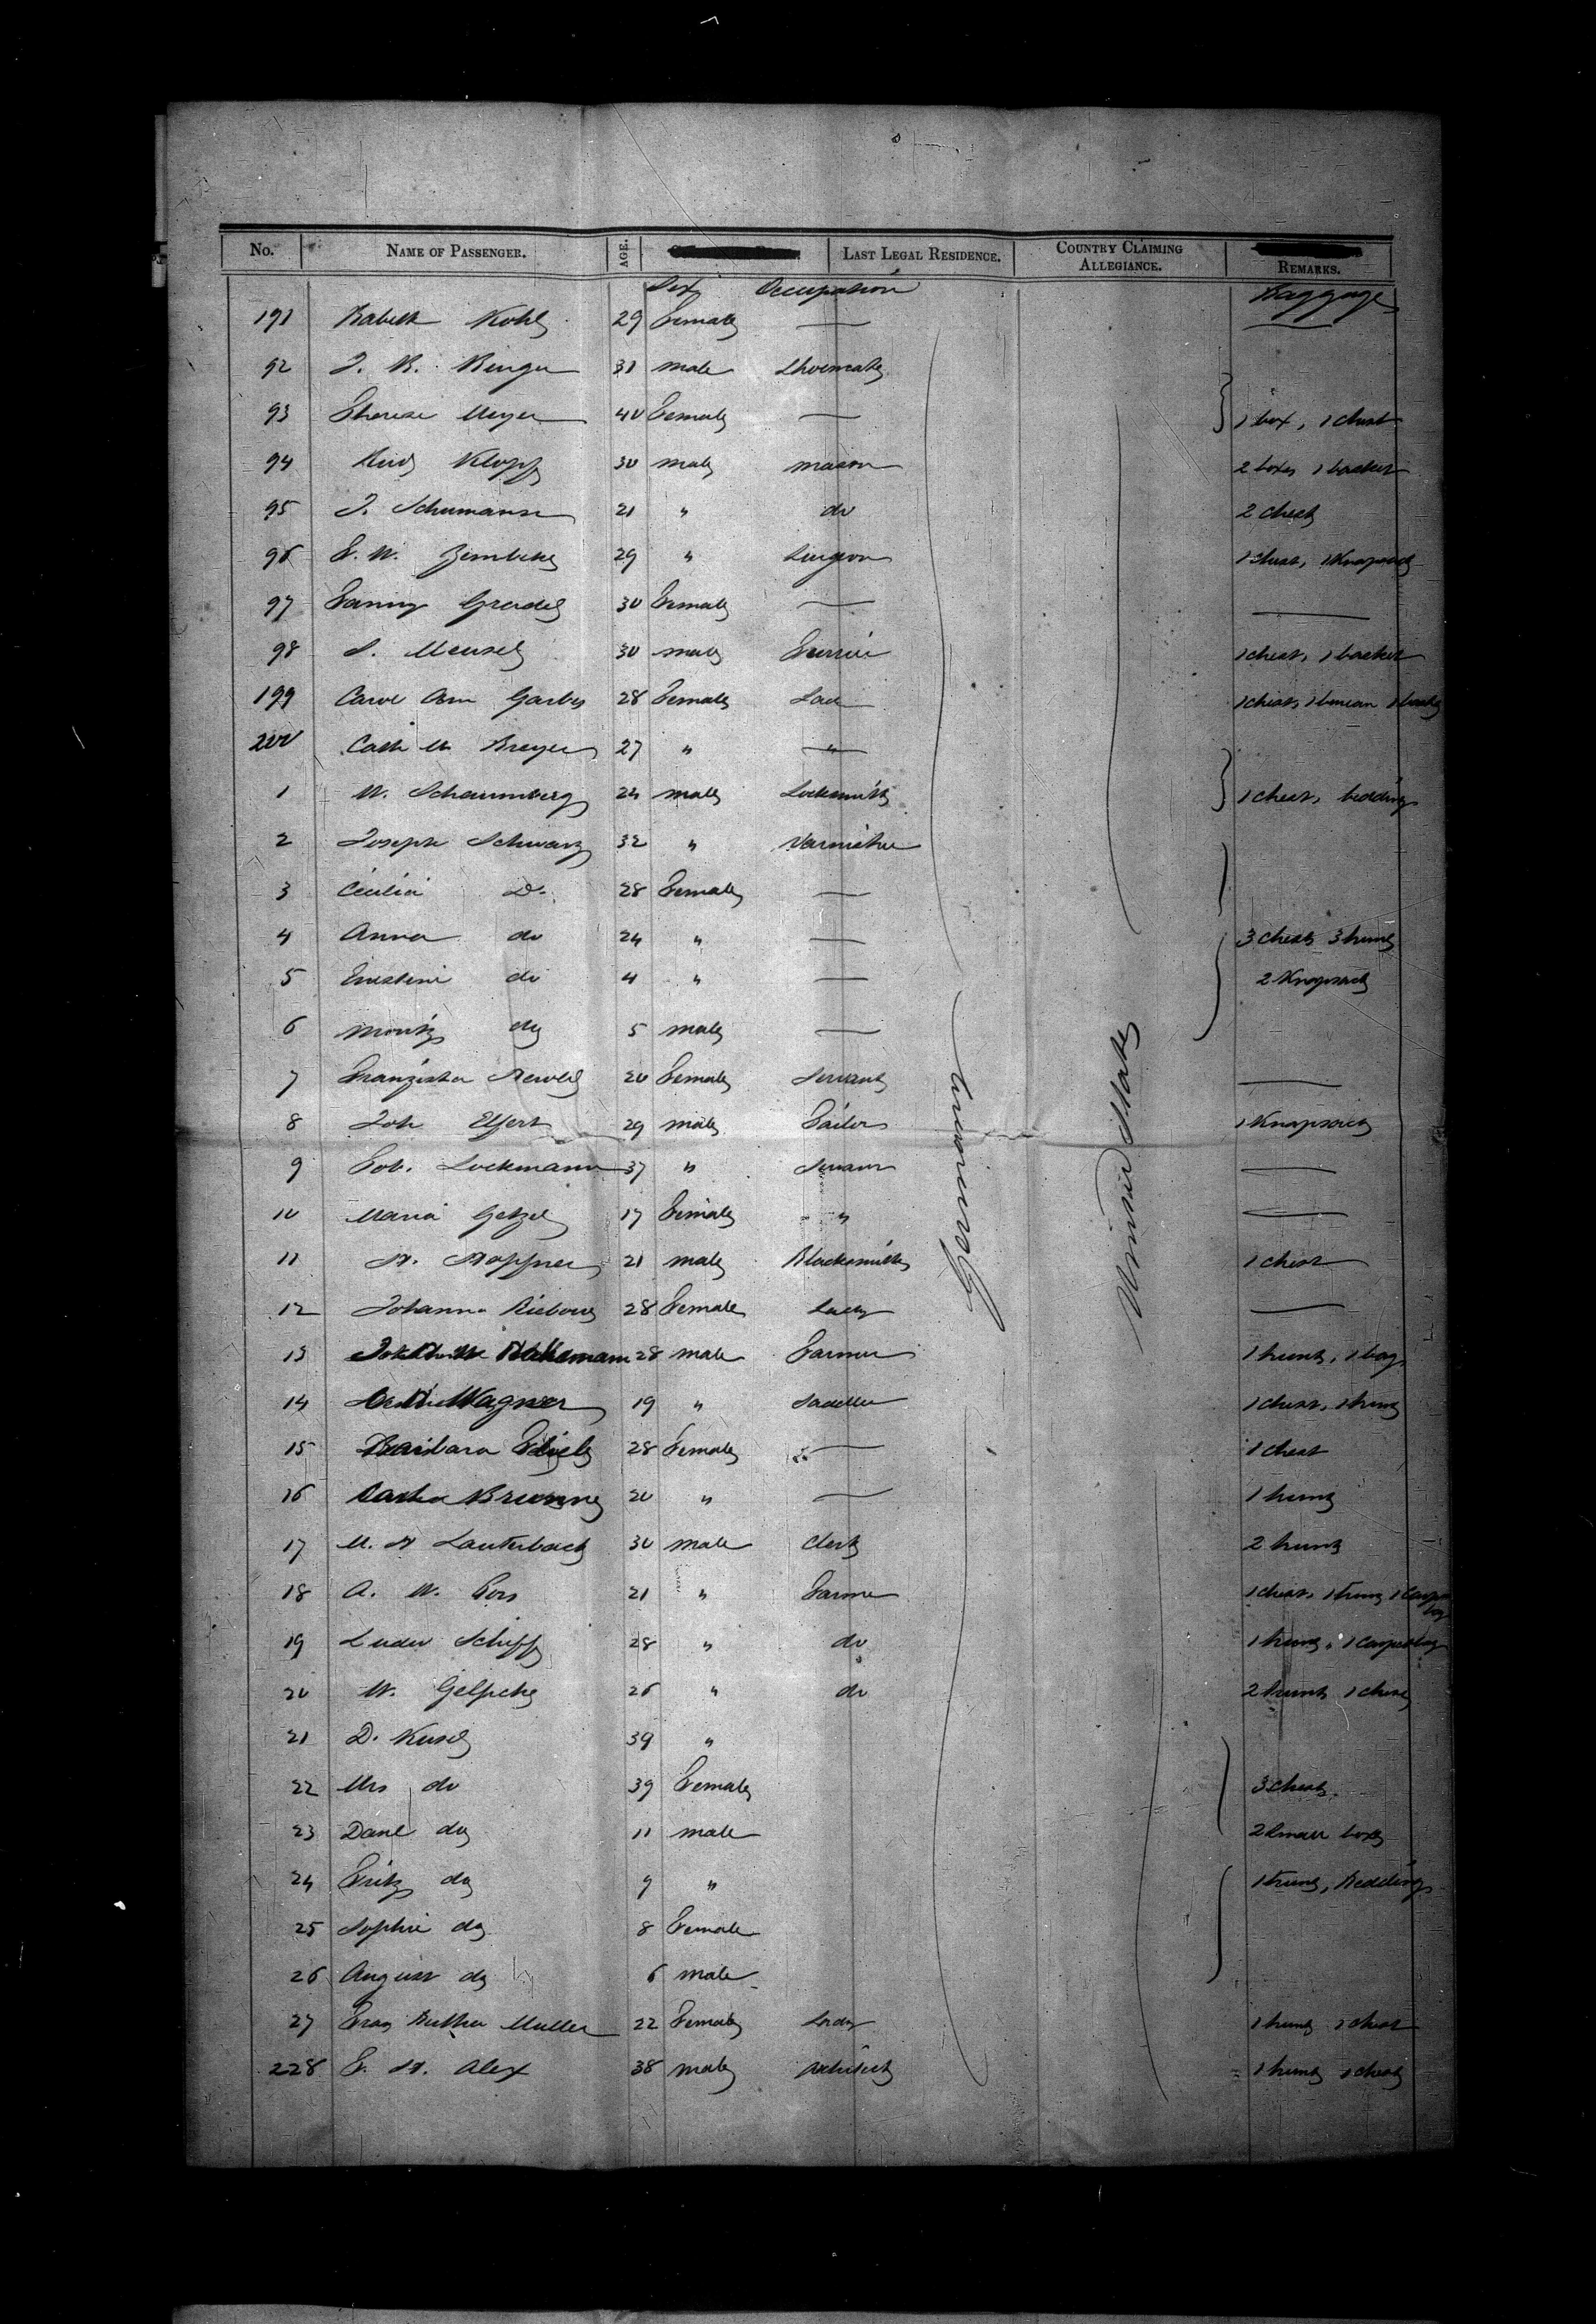 No. NAME OF PASSENGER. AGE. LAST LEGAL RESIDENCE. COUNTRY CLAIMING ALLEGIANCE. REMARKS.
Sex Occupation Baggage
191 Babeth Kohl 29 Female —
92 J. B. 31 male Shoemaker
93 Therese Meyer 40 Female — 1 box, 1 chest
94 Klopf 30 male mason 2 boxes 1 basket
95 J. Schumann 21 " do 2 chests
96 F. W. 29 " Surgeon 1 chest, 1 Knapsack
97 Fanny 30 Female — —
98 S. Meusel 30 male Furrier 1 chest, 1 basket
199 Carol Ann 28 Female 1 chest, 1
200 Cath M Breyer 27 " "
1 W. Schaumberg 24 male Locksmith 1 chest, bedding
2 Joseph Schwarz 32 " Varnisher
3 Cecilia Do 28 Female —
4 Anna do 24 " — 3 chests 3 trunks
5 Ernestine do 4 " — 2 Knapsacks
6 Moritz do 5 male —
7 Franziska 20 Female Servant —
8 Joh Elfert 29 male Tailor 1 Knapsack
9 Lockmann 37 " Servant —
10 Maria Getzel 17 Female " —
11 H. Hoffner 21 male Blacksmith 1 chest
12 Johanna 28 Female Lady —
13 28 male Farmer 1 trunk, 1 bag
14 Wagner 19 " Sadeller 1 chest, 1 trunk
15 Barbara 28 Female — 1 chest
16 Brunning 20 " — 1 trunk
17 M. H Lauterbach 30 male Clerk 2 trunks
18 A. W. 21 " Farmer 1 chest, 1 trunk 1 carpet bag
19 Luder Schiff 28 " do 1 trunk, 1 carpetbag
20 W. Gelpcke 26 " do 2 trunks 1 chest
21 D. Kusel 39 "
22 Mrs do 39 Female 3 chests
23 Danl do 11 male 2 small boxes
24 Fritz do 9 " 1 trunk, Bedding
25 Sophie do 8 Female
26 August do 6 male
27 Muller 22 Female Lady 1 trunk 1 chest
228 E. H. Alex 38 male Architect 1 trunk 1 chest
Germany
United States